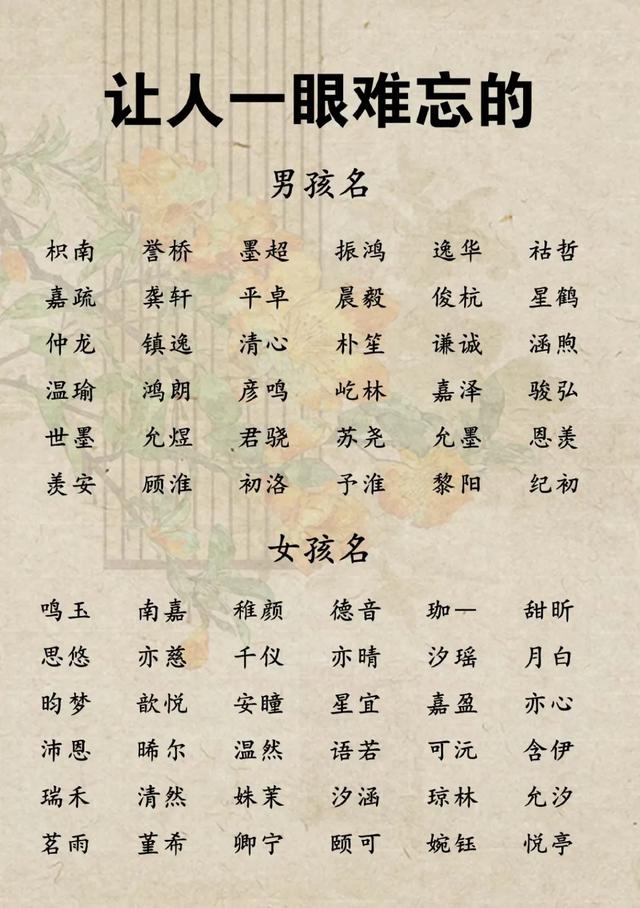 让人一眼难忘的
男孩名
枳南 誉桥 墨超 振鸿 逸华 祜哲
嘉疏 龚轩 平卓 晨毅 俊杭 星鹤
仲龙 镇逸 清心 朴笙 谦诚 涵煦
温瑜 鸿朗 彦鸣 屹林 嘉泽 骏弘
世墨 允煜 君骁 苏尧 允墨 恩羡
羡安 顾淮 初洛 予淮 黎阳 纪初
女孩名
鸣玉 南嘉 稚颜 德音 珈一 甜昕
思悠 亦慈 千仪 亦晴 汐瑶 月白
昀梦 歆悦 安瞳 星宜 嘉盈 亦心
沛恩 晞尔 温然 语若 可沅 含伊
瑞禾 清然 姝茉 汐涵 琼林 允汐
茗雨 堇希 卿宁 颐可 婉钰 悦亭